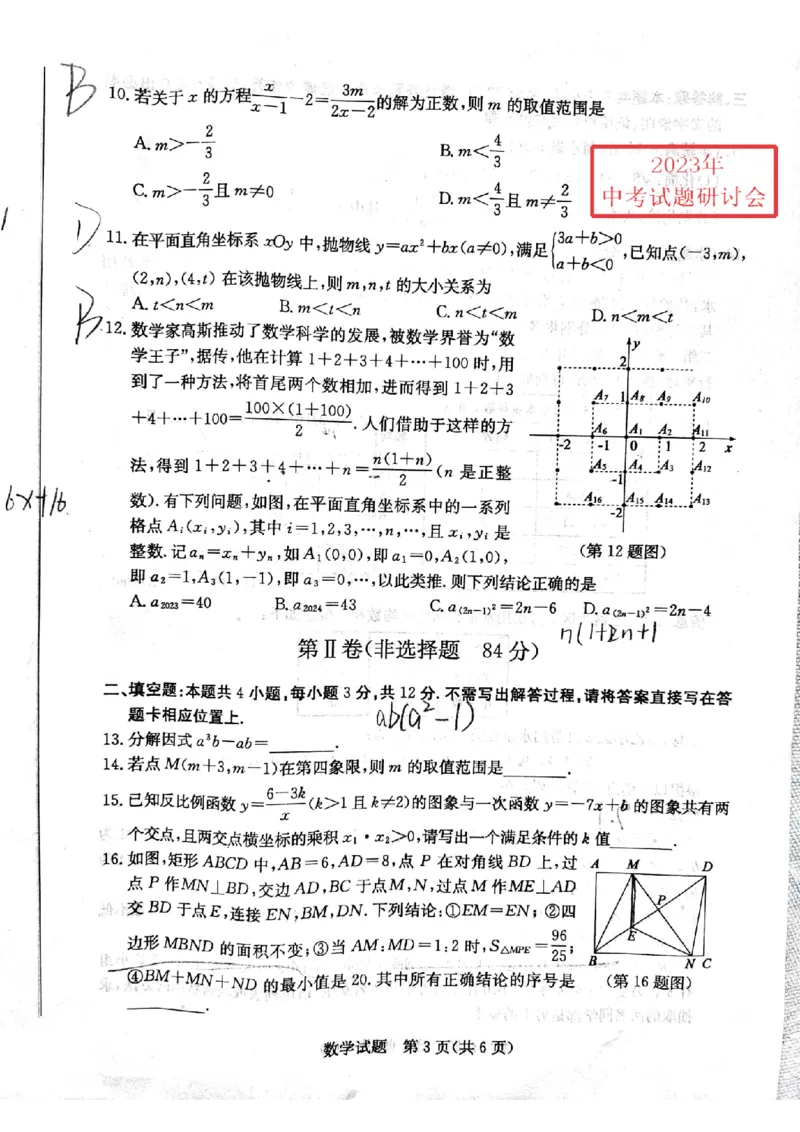 B
10. 若关于 x 的方程 x/(x-1) -2= 3m/(2x-2) 的解为正数,则 m 的取值范围是
A. m>-2/3
B. m<4/3
C. m>-2/3且 m≠0
D. m<4/3且 m≠2/3
2023年
中考试题研讨会
1
D
11. 在平面直角坐标系 xOy 中,抛物线 y=ax²+bx(a≠0),满足{3a+b>0 a+b<0,已知点(-3,m),
(2,n),(4,t)在该抛物线上,则 m,n,t 的大小关系为
A. t<n<m
B. m<t<n
C. n<t<m
D. n<m<t
B
12. 数学家高斯推动了数学科学的发展,被数学界誉为“数
学王子”,据传,他在计算 1+2+3+4+…+100 时,用
到了一种方法,将首尾两个数相加,进而得到 1+2+3
+4+…+100= 100×(1+100)/2 .人们借助于这样的方
法,得到 1+2+3+4+…+n= n(1+n)/2 (n 是正整
数).有下列问题,如图,在平面直角坐标系中的一系列
格点 Aᵢ(xᵢ,yᵢ),其中 i=1,2,3,…,n,…,且 xᵢ,yᵢ 是
整数.记 aₙ=xₙ+yₙ,如 A₁(0,0),即 a₁=0,A₂(1,0),
即 a₂=1,A₃(1,-1),即 a₃=0,…,以此类推.则下列结论正确的是
6x+16
y
2
A₇ 1 A₈ A₉ A₁₀
A₆ A₁ A₂ A₁₁
-2 -1 0 1 2 x
A₅ A₄ A₃ A₁₂
-1
A₁₆ A₁₅ A₁₄ A₁₃
-2
(第 12题图)
A. a₂₀₂₃=40
B. a₂₀₂₄=43
C. a₍₂ₙ₋₁₎²=2n-6
D. a₍₂ₙ₋₁₎²=2n-4
第Ⅱ卷(非选择题 84分)
二、填空题:本题共 4 小题,每小题 3 分,共 12 分.不需写出解答过程,请将答案直接写在答
题卡相应位置上.
ab(a²-1)
13. 分解因式 a³b-ab=______.
14. 若点 M(m+3,m-1)在第四象限,则 m 的取值范围是______.
15. 已知反比例函数 y= (6-3k)/x (k>1 且 k≠2)的图象与一次函数 y=-7x+b 的图象共有两
个交点,且两交点横坐标的乘积 x₁·x₂>0,请写出一个满足条件的 k 值______.
16. 如图,矩形 ABCD 中,AB=6,AD=8,点 P 在对角线 BD 上,过
点 P 作MN⊥BD,交边 AD,BC 于点M,N,过点 M 作ME⊥AD
交 BD 于点 E,连接 EN,BM,DN.下列结论:①EM=EN;②四
边形 MBND 的面积不变;③当 AM:MD=1:2 时,S△MPE= 96/25;
④BM+MN+ND 的最小值是 20.其中所有正确结论的序号是
______.
A M D
P
E
B N C
(第 16 题图)
数学试题 第 3 页(共 6 页)